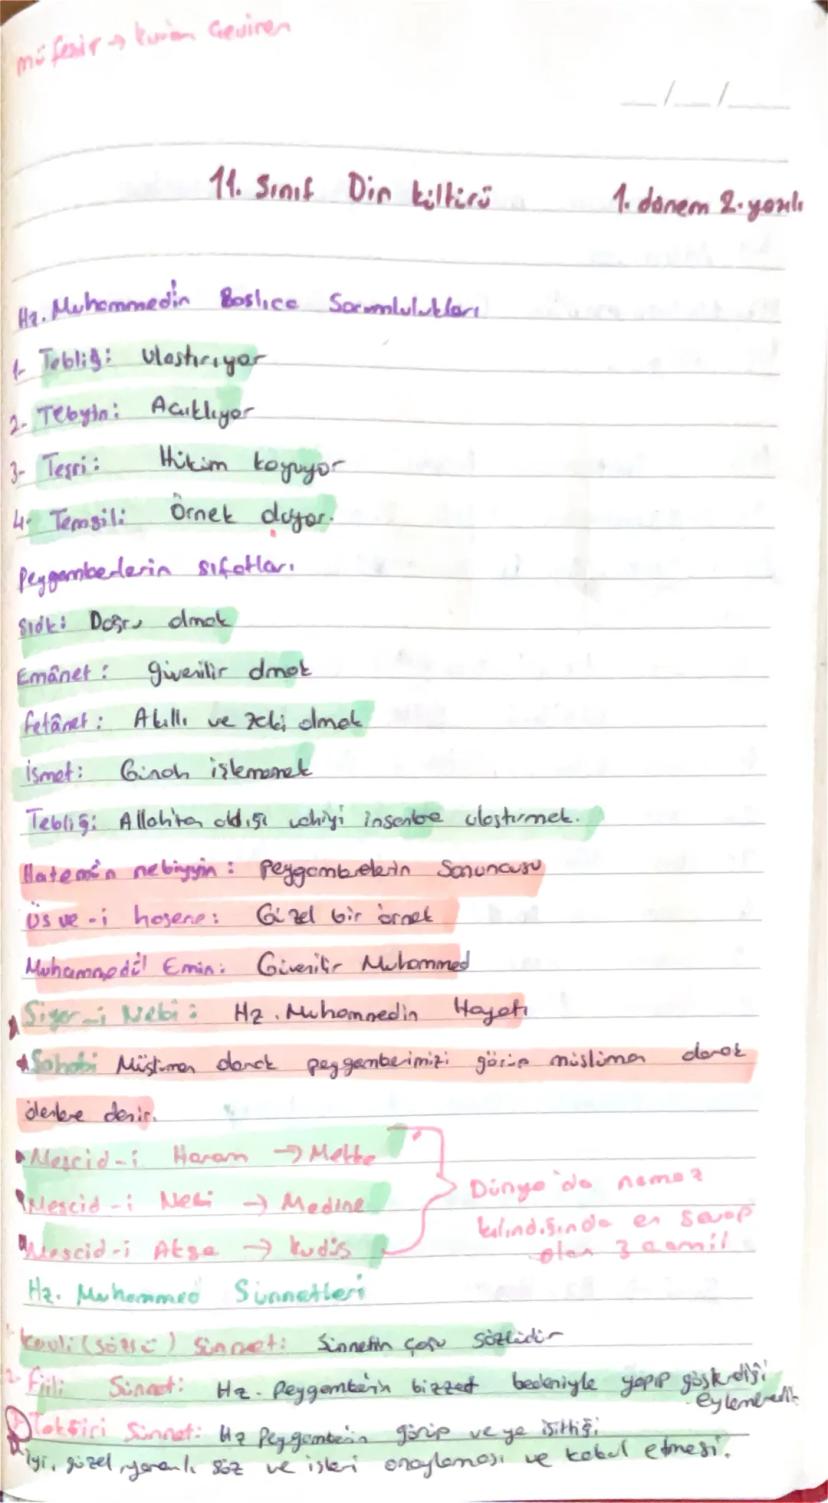 müfesir → kuran Çeviren
__/__/____
11. Sınıf Din kültürü 1. dönem 2. yazılı
Hz. Muhammedin Başlıca Sorumlulukları
1- Tebliğ: Ulaştırıyor
2- Tebyin: Açıklıyor
3- Teşri: Hüküm koyuyor
4- Temsil: Örnek oluyor.
Peygamberlerin sıfatları
Sıdk: Doğru olmak
Emânet: güvenilir olmak
fetânet: Akıllı ve zeki olmak
ismet: Günah işlememek
Tebliğ: Allahtan aldığı vahiyi insanlara ulaştırmak.
Hatemün nebiyyin: Peygamberlerin Sonuncusu
Üsve-i hasene: Güzel bir örnek
Muhammedül Emin: Güvenilir Muhammed
Siyer-i Nebi: Hz. Muhammedin Hayatı
Sahabi Müslüman olarak peygamberimizi görüp müslüman olarak
ölenlere denir.
Mescid-i Haram → Mekke
Mescid-i Nebi → Medine
Mescid-i Aksa → kudüs
Dünya'da namaz
kılındığında en sevap
olan 3 camii
Hz. Muhammed Sünnetleri
kavli (sözlü) Sünnet: Sünnetin çoğu sözlüdür
2- Fiili Sünnet: Hz. Peygamberin bizzat bedeniyle yapıp gösterdiği
eylemlerdir
Takriri Sünnet: Hz Peygamberin görüp veya işittiği
iyi, güzel, yararlı söz ve işleri onaylaması ve kabul etmesi.